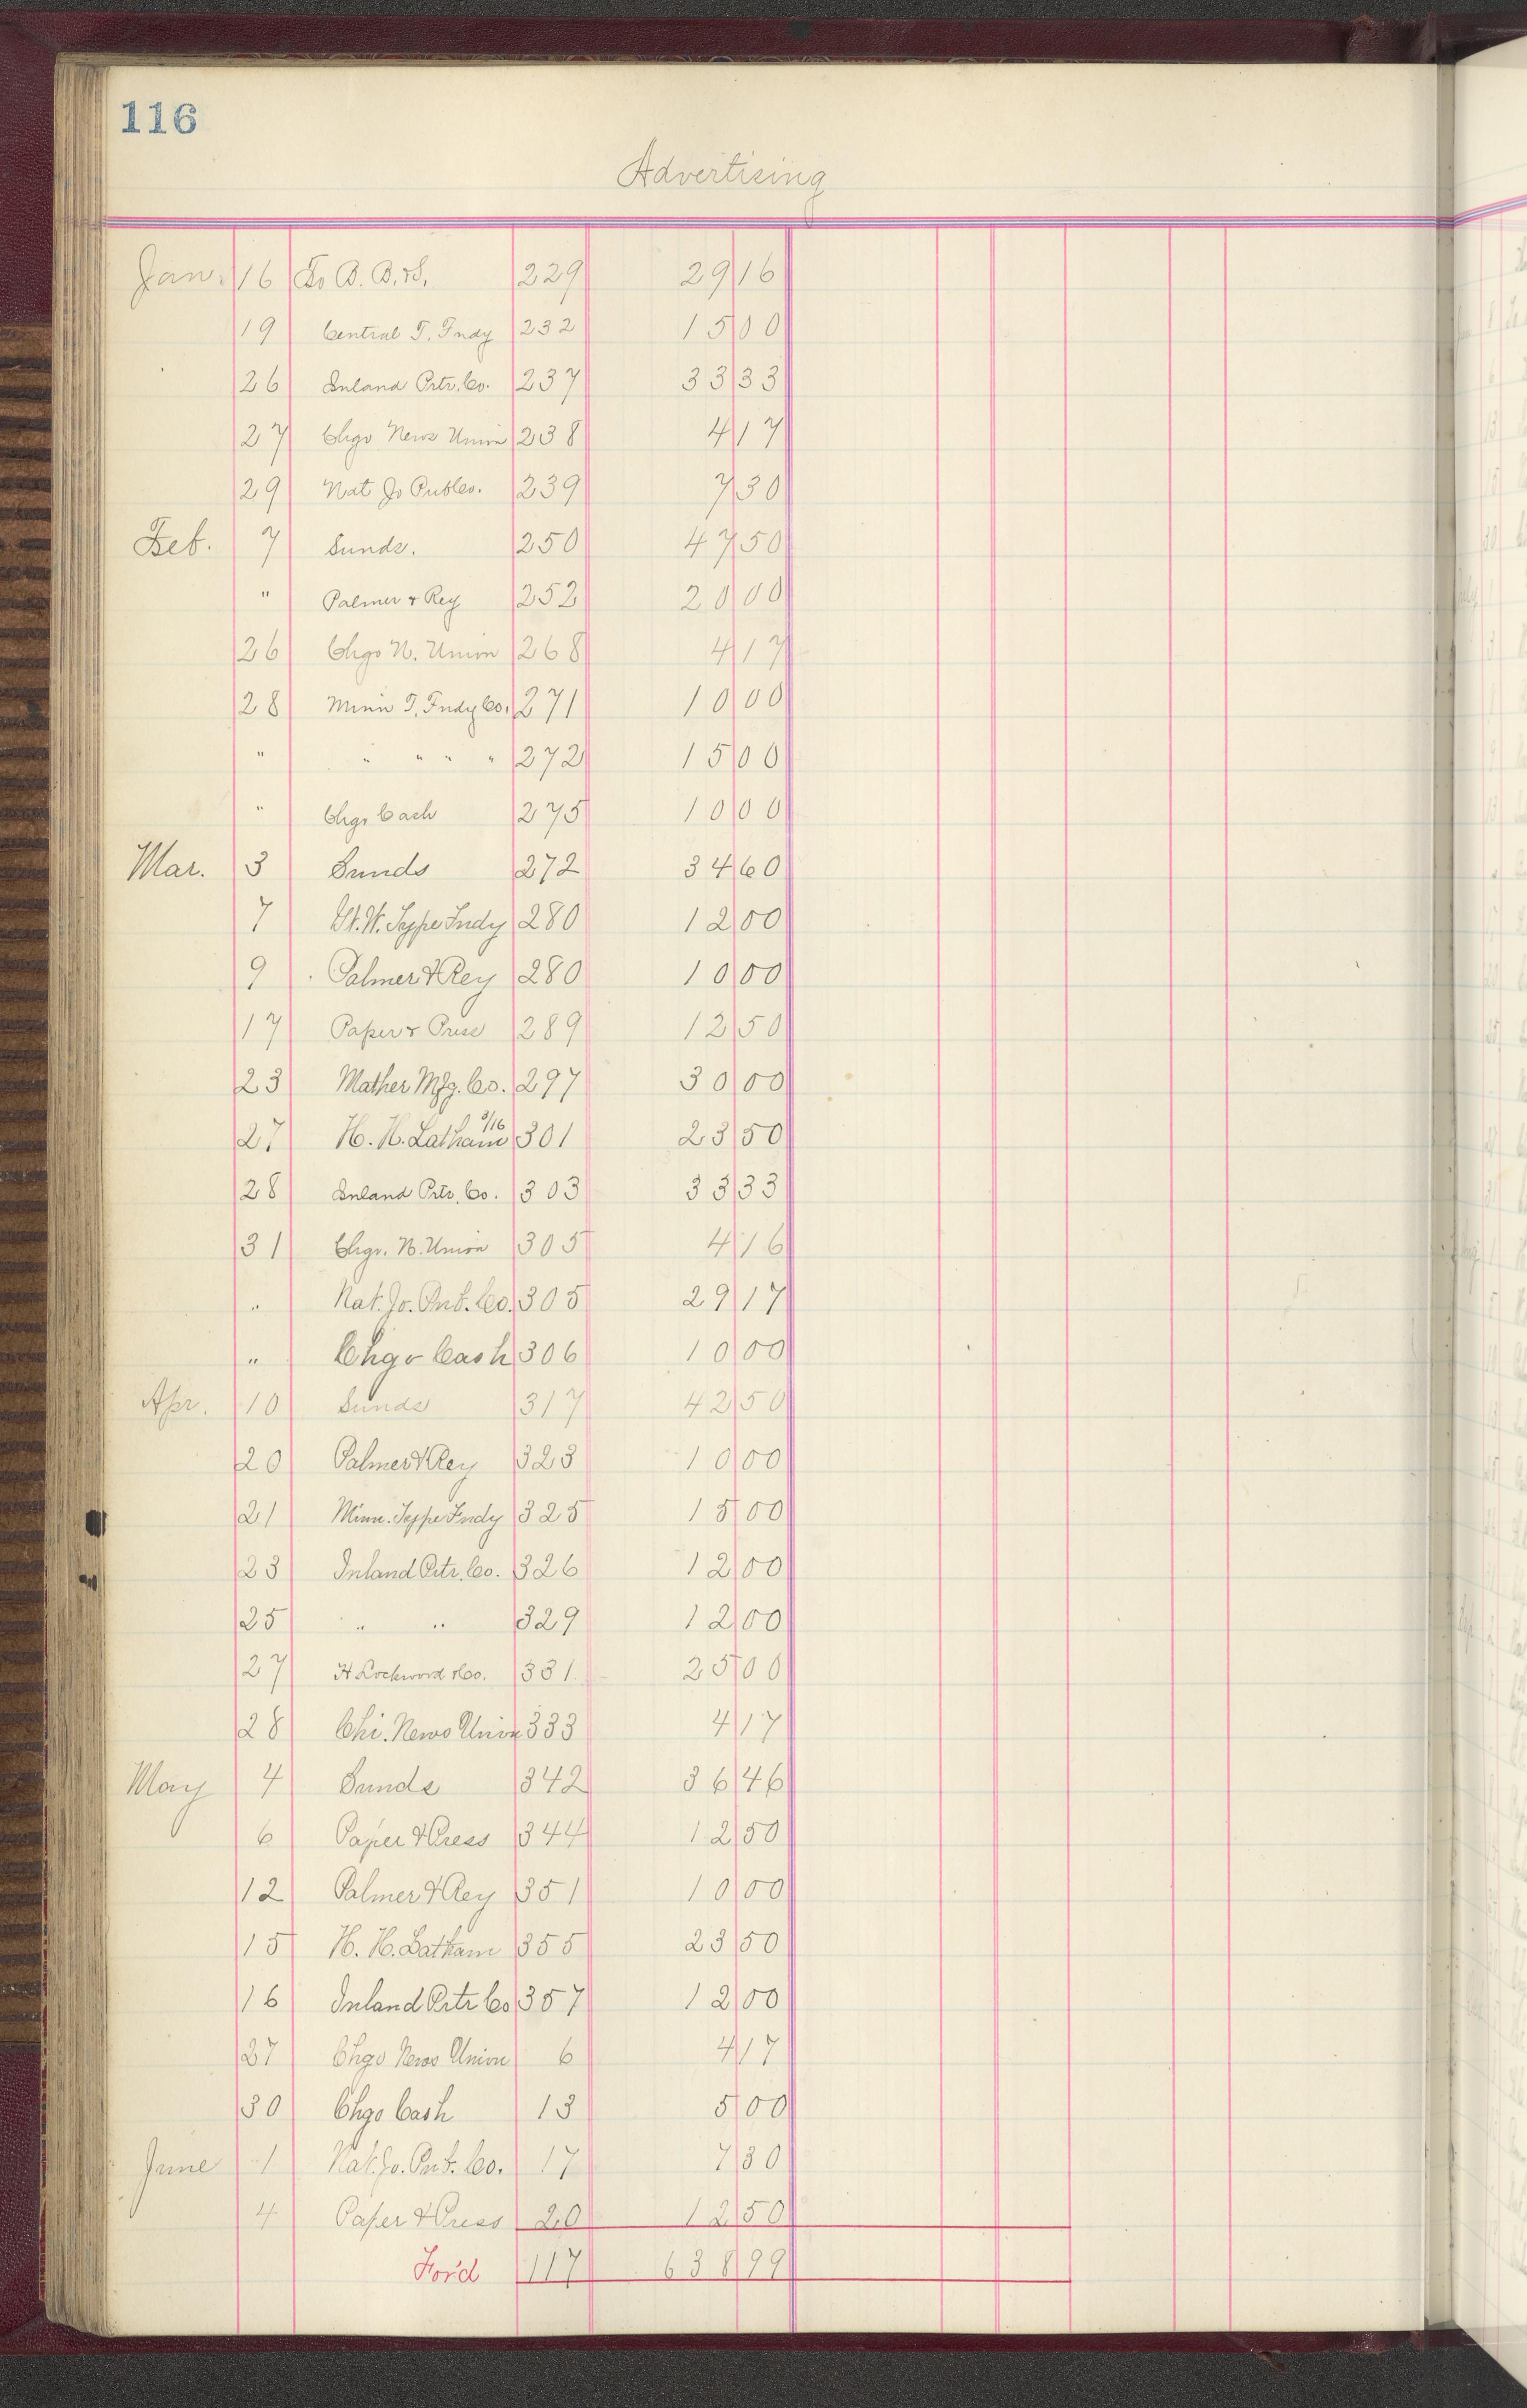 116
Advertising
Jan. 16 To B. B. & S. 229 29 16
19 Central T. Fndy 232 15 00
26 Inland Prtr. Co. 237 33 33
27 Chgo News Union 238 4 17
29 Nat Jo Pub Co. 239 7 30
Feb. 7 Sunds. 250 47 50
" Palmer & Rey 252 20 00
26 Chgo N. Union 268 4 17
28 Minn T. Fndy Co. 271 10 00
" " " " " 272 15 00
" Chgo Cash 275 10 00
Mar. 3 Sunds 272 34 60
7 St. Type Fndy 280 12 00
9 Palmer & Rey 280 10 00
17 Paper & Press 289 12 50
23 Mather Mfg. Co. 297 30 00
27 H. H. Latham 3/16 301 23 50
28 Inland Prtr. Co. 303 33 33
31 Chgo. N. Union 305 4 16
" Nat. Jo. Pub. Co. 305 29 17
" Chgo Cash 306 10 00
Apr. 10 Sunds 317 42 50
20 Palmer & Rey 323 10 00
21 Minn. Type Fndy 325 15 00
23 Inland Prtr. Co. 326 12 00
25 " " 329 12 00
27 H Lockwood & Co. 331 25 00
28 Chi. News Union 333 4 17
May 4 Sunds 342 36 46
6 Paper & Press 344 12 50
12 Palmer & Rey 351 10 00
15 H. H. Latham 355 23 50
16 Inland Prtr Co 357 12 00
27 Chgo News Union 6 4 17
30 Chgo Cash 13 5 00
June 1 Nat. Jo. Pub. Co. 17 7 30
4 Paper & Press 20 12 50
For'd 117 638 99